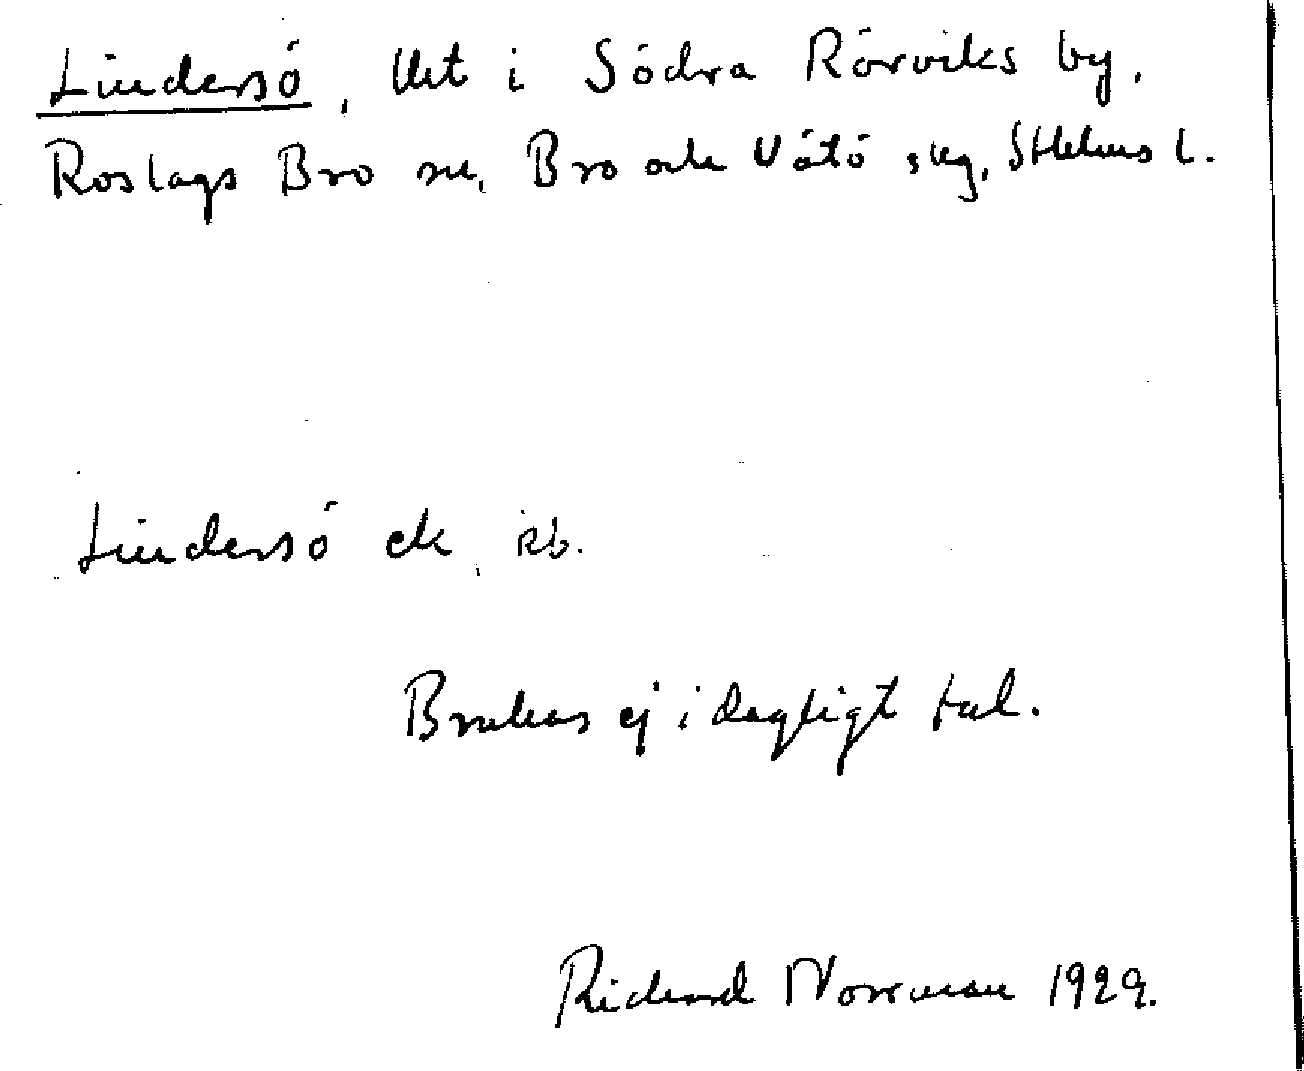 Lindersö, llht i Södra Rörviks by,
Roslags Bro sn, Bro och Vätö skg, Sthlms l.
Lindersö ek rb.
Brukas ej i dagligt tal.
Richard Norrman 1929.